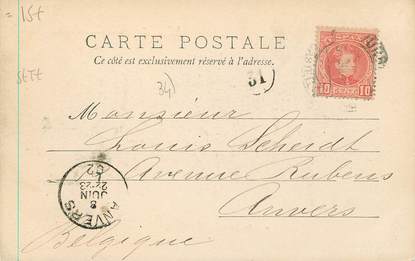 = 15t
CARTE POSTALE
Ce côté est exclusivement réservé à l'adresse.
34)
31
10 CENT. 10
Monsieur
Louis Scheidt
Avenue Rubens
Anvers
Belgique
ANVERS
8
JUIN
02